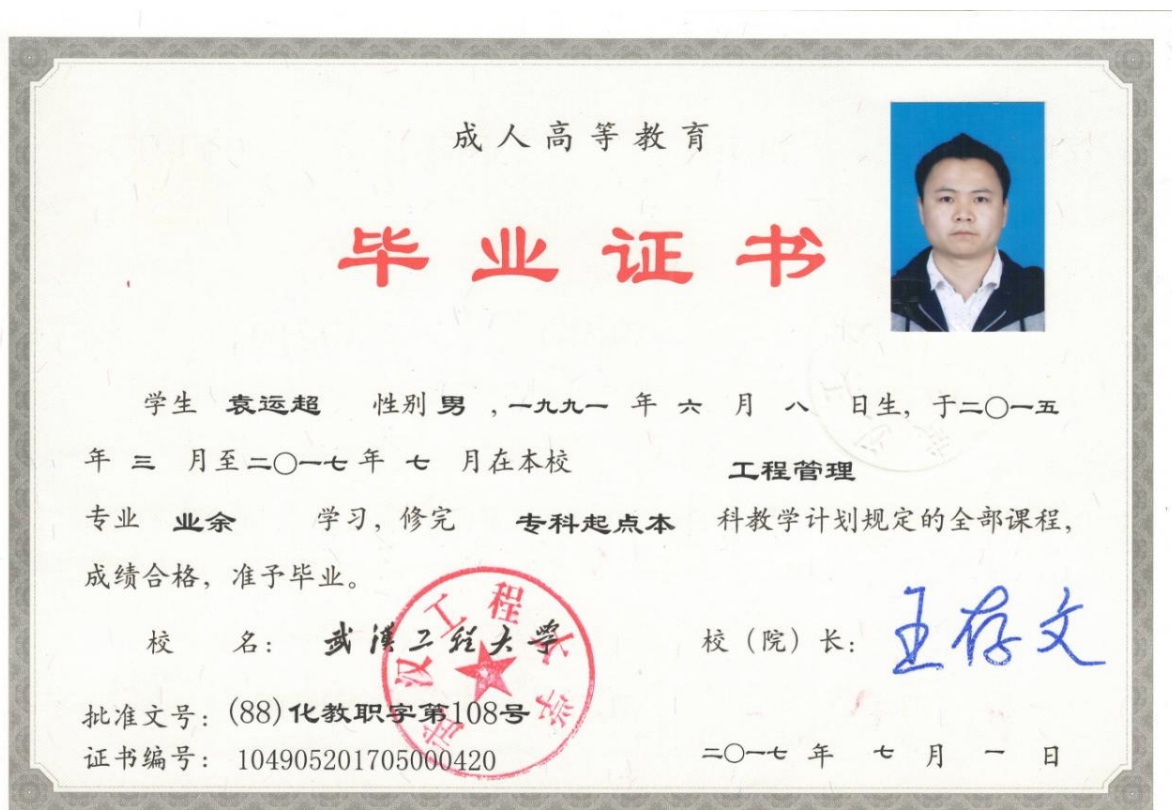 成人高等教育
毕业证书
学生 袁运超 性别 男 ,一九九一 年 六 月 八 日生, 于二〇一五
年 三 月至二〇一七年 七 月在本校 工程管理
专业 业余 学习, 修完 专科起点本 科教学计划规定的全部课程,
成绩合格, 准予毕业。
校 名: 武汉工程大学
校(院)长: 王存文
武汉工程大学
批准文号: (88)化教职字第108号
证书编号: 104905201705000420
二〇一七 年 七 月 一 日